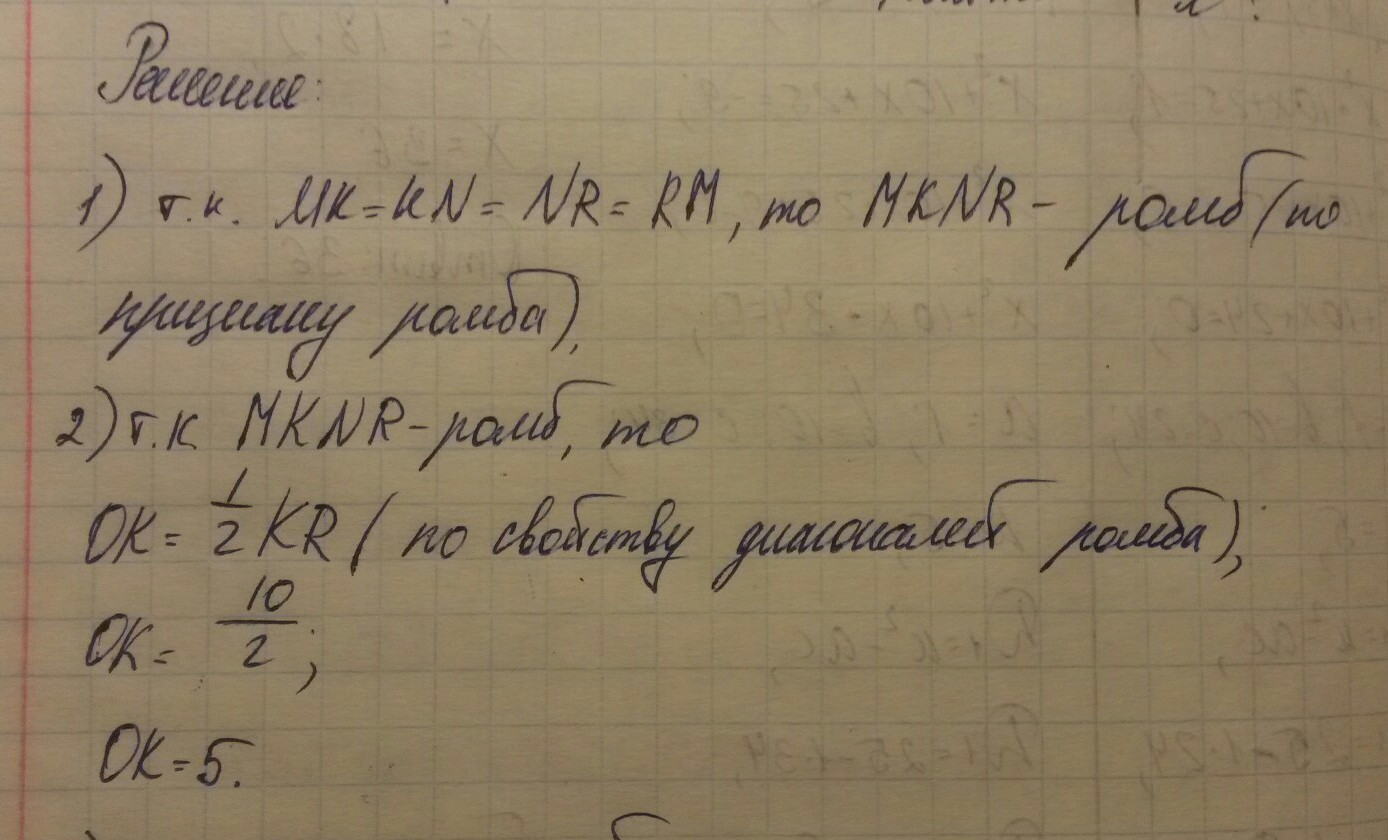 Решение:
1) т.к. MK=KN=NR=RM, то MKNR- ромб (по
признаку ромба),
2) т.к MKNR-ромб, то
OK= 1/2 KR ( по свойству диагоналей ромба);
OK= 10/2;
OK=5.